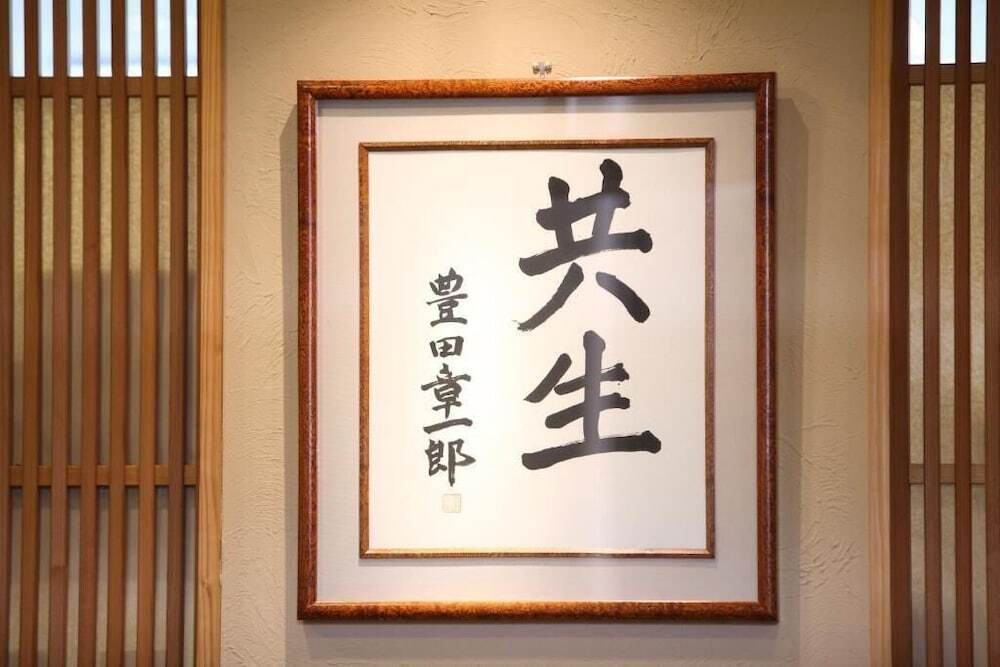 共生
豊田章一郎